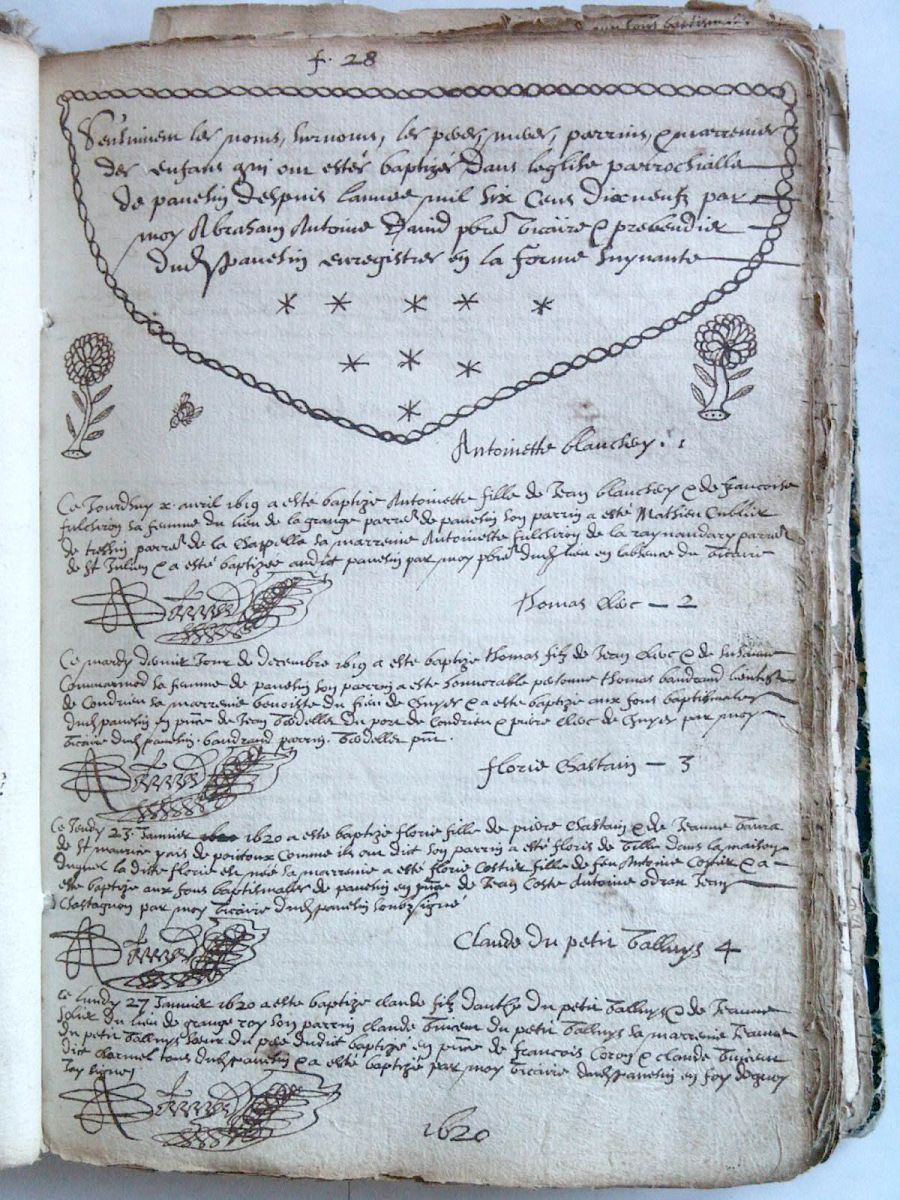 f. 28
Sensuivent les noms, surnoms, les peres, meres, parrins, & marreines
des enfans qui ont estés baptizés dans leglise parrochialle
de pavesin despuis lannee mil six cens dixneufz par
moy Abraham Antoine David pbre vicaire & prebendier
dud pavesin enregistrés en la forme suyvante
Antoinette blanchey . 1
Ce Jourdhuy x avril 1619 a esté baptizé Antoinette fille de Jean blanchey & de francoise
fulchiron sa femme du lieu de la grange parre de pavesin son parrin a esté Mathieu
de parre de la Chappelle sa marreine Antoinette fulchiron de la parre
de St Julien & a esté baptizée audict pavesin par moy pbre dud lieu en labsence du vicaire
Thomas Cloc — 2
Ce mardy Jour de decembre 1619 a esté baptizé Thomas filz de Jean Cloc & de Susanne
Commarmod sa femme de pavesin son parrin a esté honnorable personne Thomas baudrand
de Condrieu sa marreine benoiste du lieu de Chuyes & a esté baptizé aux fons baptismales
dud pavesin en pnce de Jean du port de Condrieu & pierre Cloc de Chuyes par moy
vicaire dud pavesin . baudrand parrin .
florie Chastain — 3
Ce Jeudy 23 Janvier 1620 a esté baptizé florie fille de pierre Chastain & de Jeanne
de St maurice pais de poitoux comme ils ont dit son parrin a esté floris de Ville dans la maison
duquel la dicte florie est née sa marreine a esté florie Costier fille de feu Antoine Costier & a
esté baptizé aux fons baptismales de pavesin en pnce de Jean Coste Antoine odran Jean
Chastagnon par moy vicaire dud pavesin soubzsigné
Claude du petit Valluys 4
Ce Lundy 27 Janvier 1620 a esté baptizé claude filz du petit Valluys & de Jeanne
du lieu de grange roy son parrin claude Vincent du petit Valluys sa marreine Jeanne
du petit Valluys sœur du pere dudict baptizé en pnce de francois Coron & claude Vincent
dict charmel tous dud pavesin & a esté baptizé par moy vicaire dud pavesin en foy dequoy
Jay signé
1620